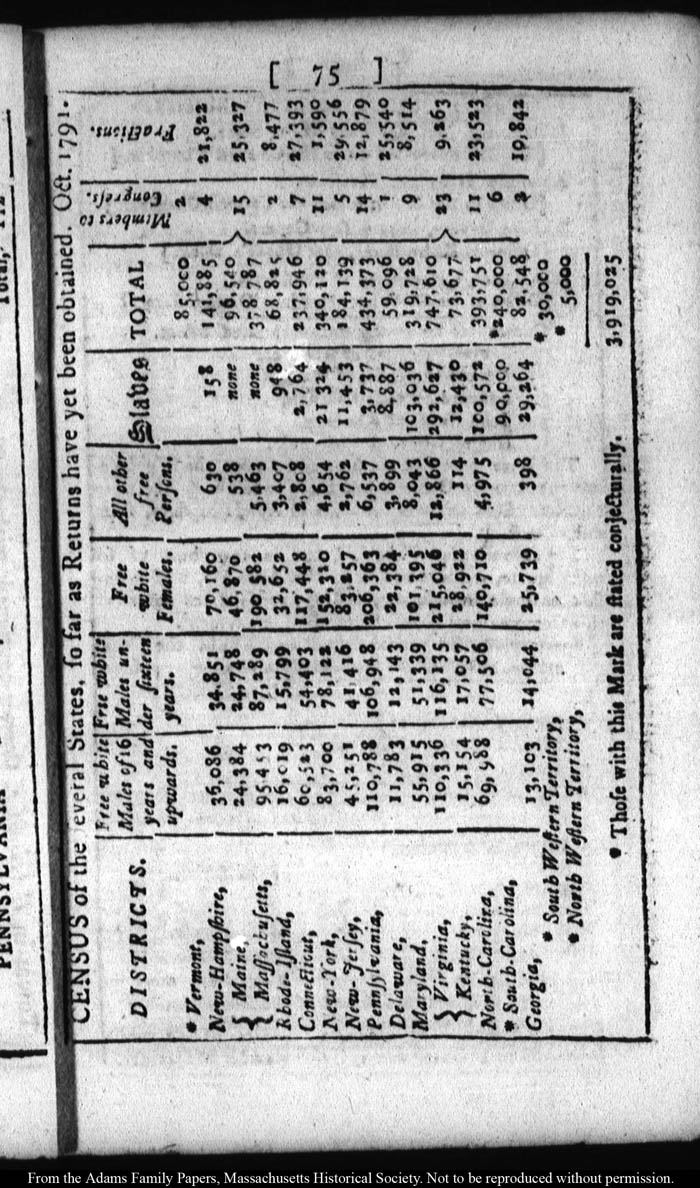 [ 75 ]
CENSUS of the several States, ſo far as Returns have yet been obtained. Oct. 1791.
DISTRICTS. Free white Males of 16 years and upwards. Free white Males under ſixteen years. Free white Females. All other free Perſons. Slaves TOTAL Members to Congreſs. Fractions.
* Vermont, 85,000 2
New-Hampſhire, 36,086 34,851 70,160 630 158 141,885 4 21,822
{ Maine, 24,384 24,748 46,870 538 none 96,540 } 15 25,327
{ Maſſachuſetts, 95,453 87,289 190,582 5,463 none 378,787
Rhode-Iſland, 16,019 15,799 32,652 3,407 948 68,825 2 8,477
Connecticut, 60,523 54,403 117,448 2,808 2,764 237,946 7 27,393
New-York, 83,700 78,122 152,320 4,654 21,324 340,120 11 1,590
New-Jerſey, 45,251 41,416 83,257 2,762 11,453 184,139 5 29,556
Pennſylvania, 110,788 106,948 206,363 6,537 3,737 434,373 14 12,879
Delaware, 11,783 12,143 22,384 3,899 8,887 59,096 1 25,540
Maryland, 55,915 51,339 101,395 8,043 103,036 319,728 9 8,514
{ Virginia, 110,936 116,135 215,046 12,866 292,627 747,610 } 23 9,263
{ Kentucky, 15,154 17,057 28,922 114 12,430 73,677
North-Carolina, 69,988 77,506 140,710 4,975 100,572 393,751 11 23,523
* South-Carolina, 90,000 *240,000 6
Georgia, 13,103 14,044 25,739 398 29,264 82,548 2 19,842
* South Weſtern Territory, * 30,000
* North Weſtern Territory, * 5,000
3,919,025
* Thoſe with this Mark are ſtated conjecturally.
PENNSYLVANIA
Total,
From the Adams Family Papers, Massachusetts Historical Society. Not to be reproduced without permission.